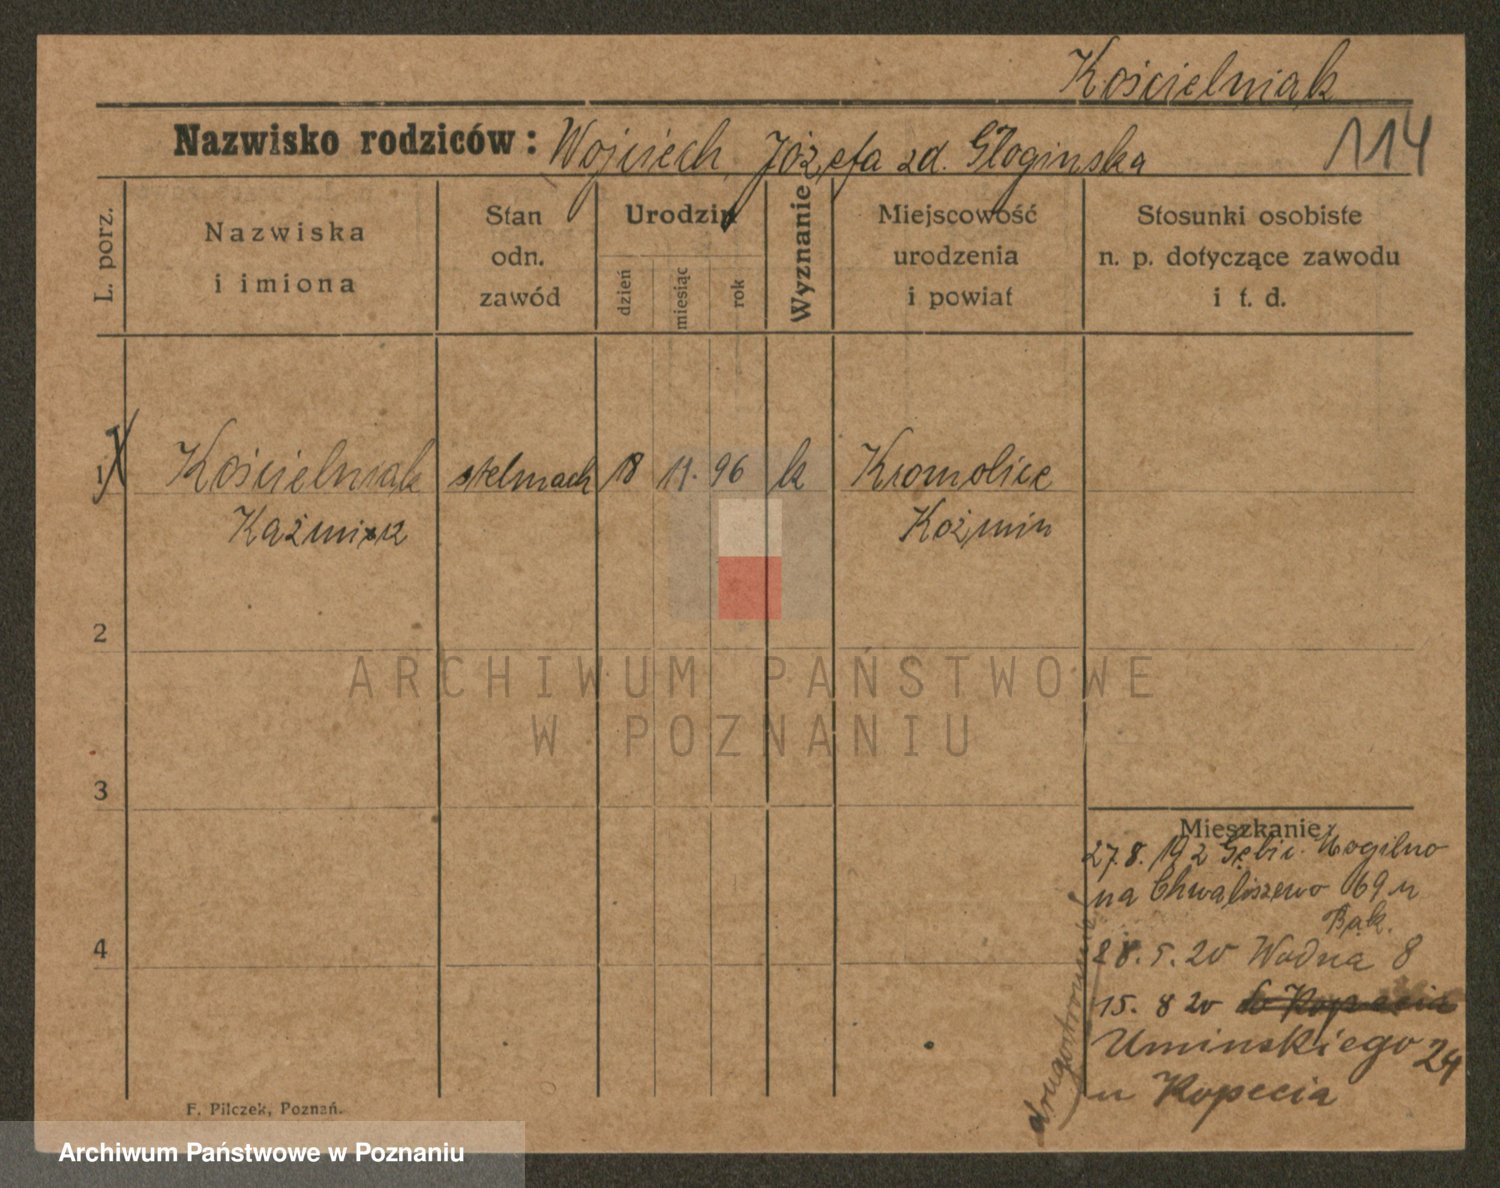 Kościelniak
Nazwisko rodziców: Wojciech, Józefa zd. Głoginska 114
L. porz.
Nazwiska
i imiona
Stan
odn.
zawód
Urodzin
dzień
miesiąc
rok
Wyznanie
Miejscowość
urodzenia
i powiat
Stosunki osobiste
n. p. dotyczące zawodu
i t. d.
1 Kościelniak stelmach 18 11. 96 k Kromolice
Kaźmierz Koźmin
2
ARCHIWUM PAŃSTWOWE
W POZNANIU
3
Mieszkanie:
27.8. 192 Gębic. Mogilno
na Chwaliszewo 69 u
Bąk.
4
28. 5. 20 Wodna 8
15. 8 20 Kopecia
Uminskiego 24
u Kopecia
drugostronnie
F. Pilczek, Poznań.
Archiwum Państwowe w Poznaniu